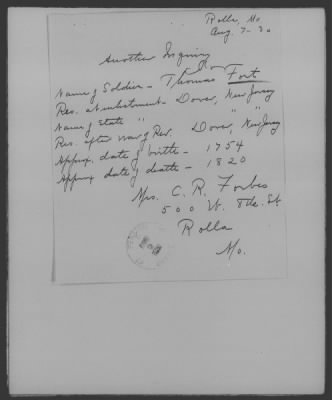 Rolla, Mo
Aug. 7-30
Another Inquiry
Name of Soldier - Thomas Fort
Res. at enlistment - Dover, New Jersey
Name of State " " "
Res. after war of Rev. Dover, New Jersey
Approx. date of birth - 1754
Approx date of death - 1820
Mrs. C. R. Forbes
500 W. 8th. St
Rolla
Mo.